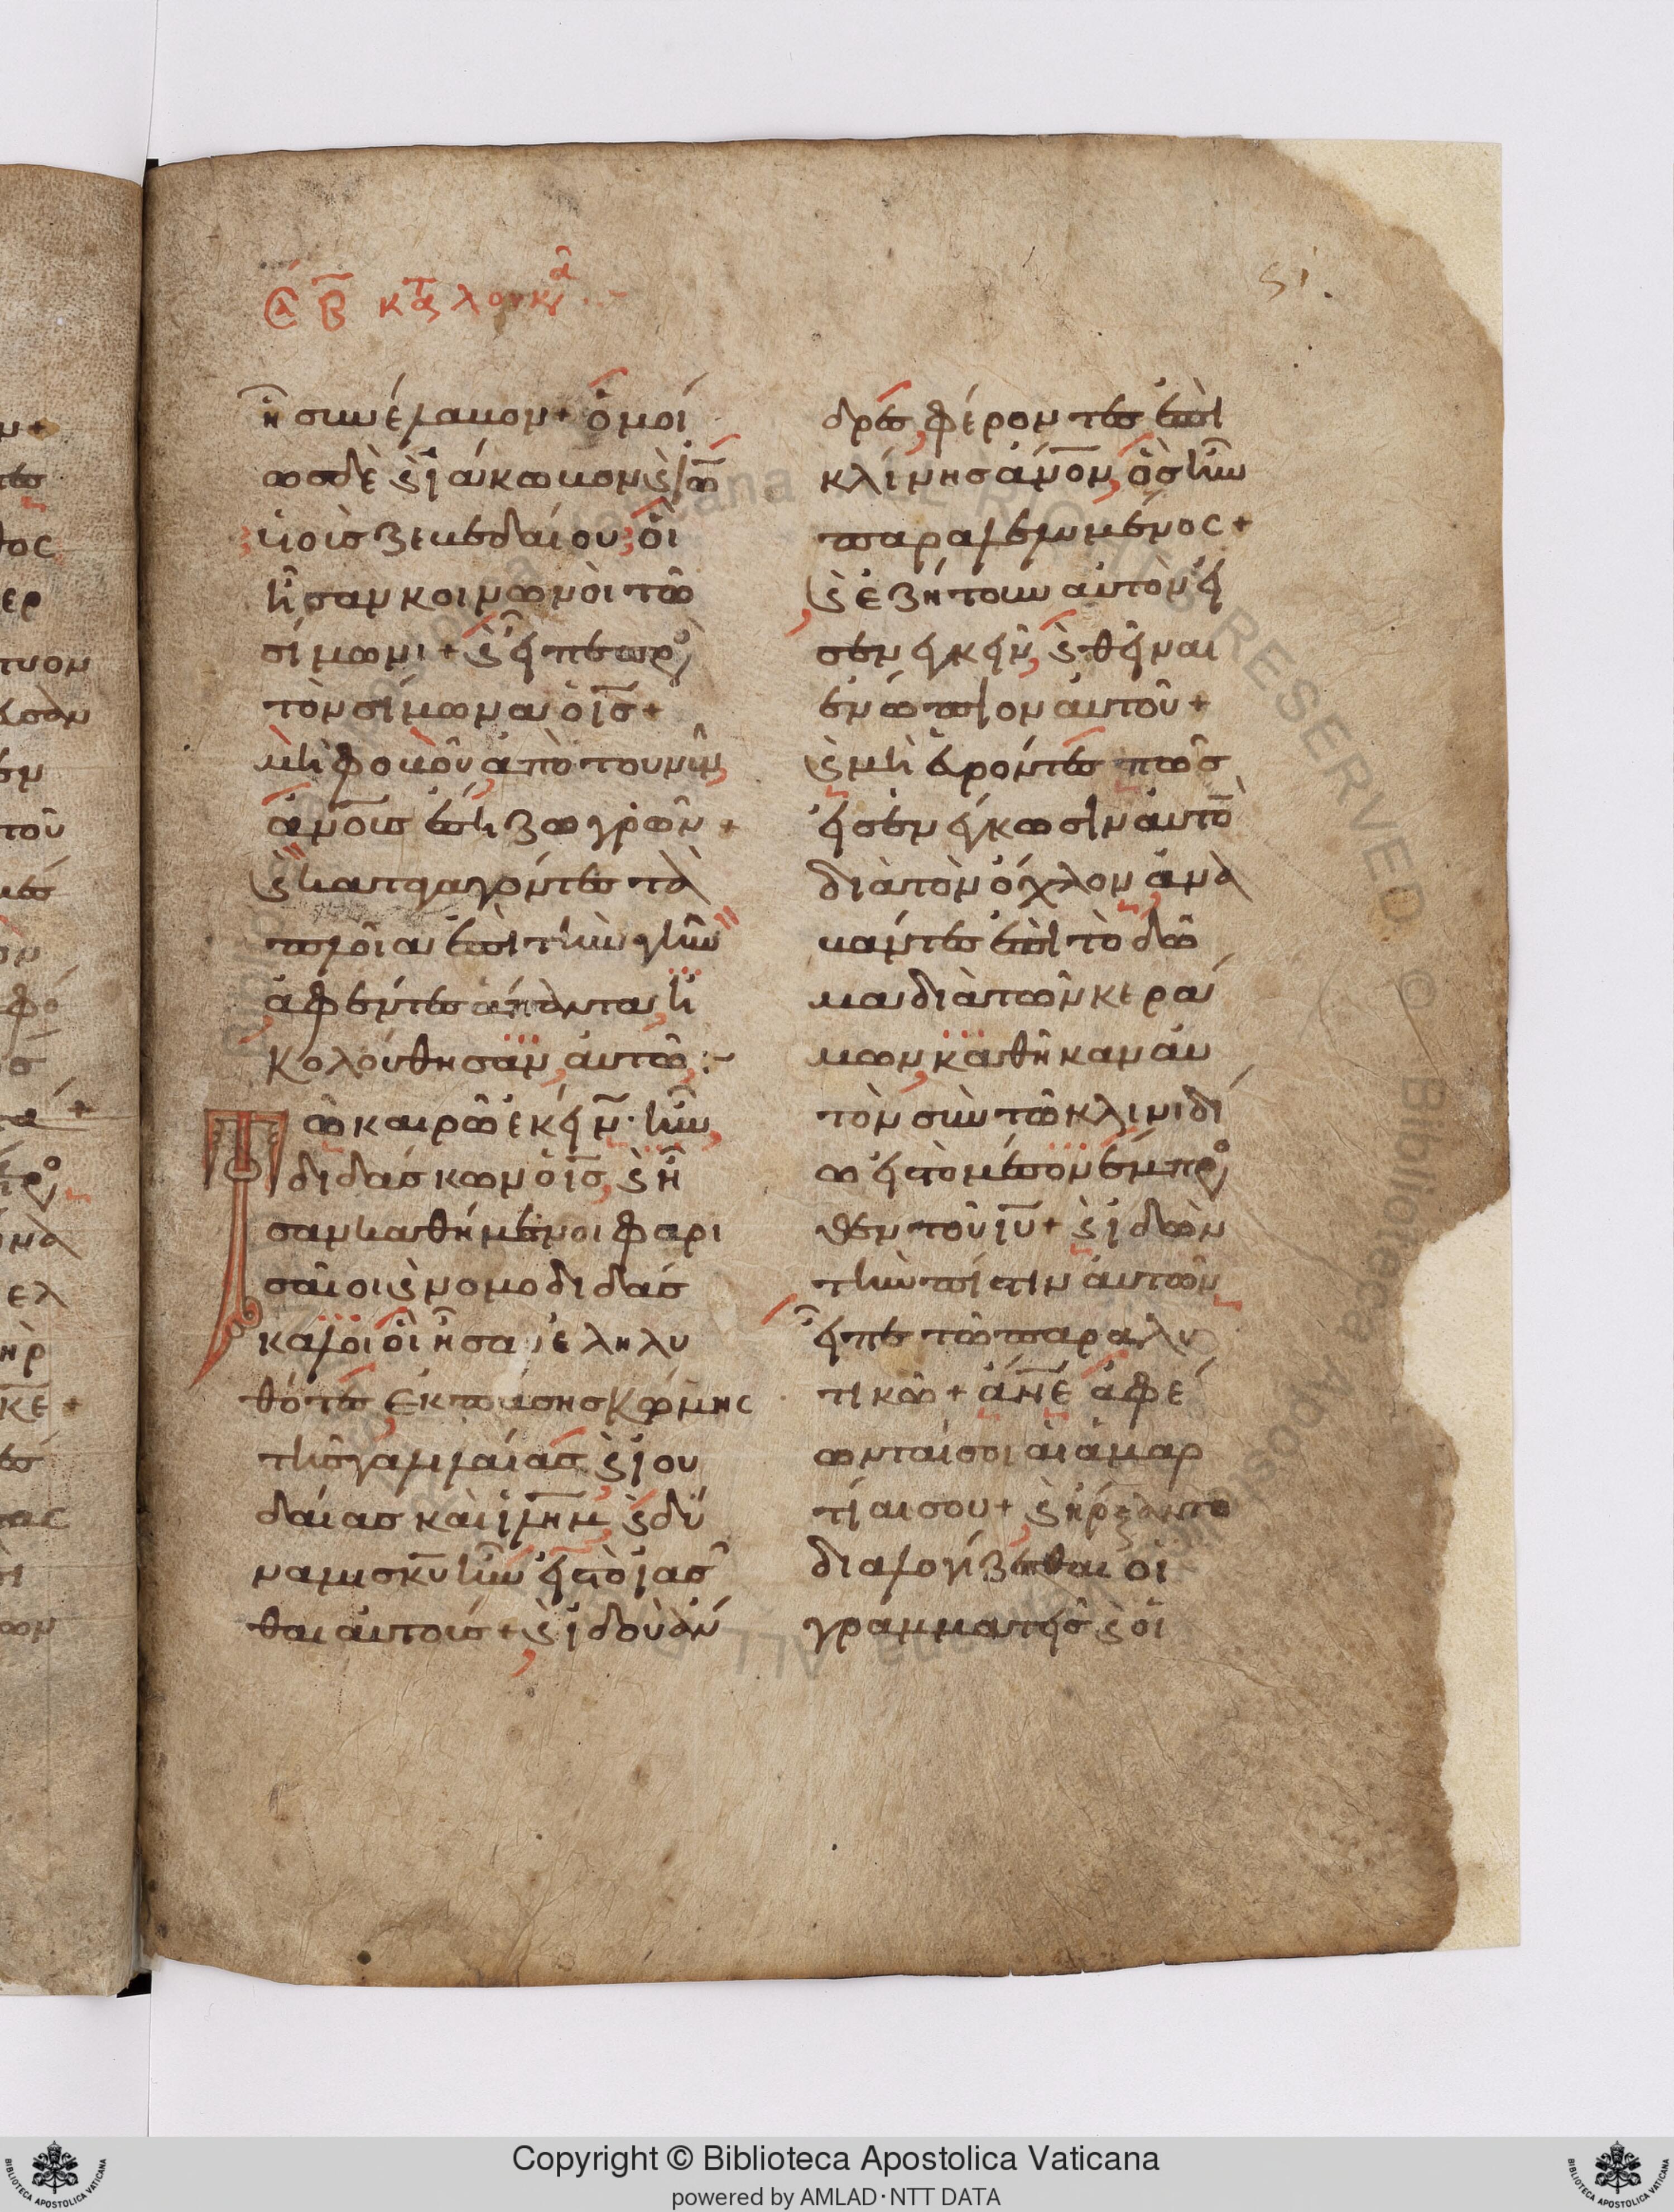 Σα Β κατ λουκα
ϛι
ἧ συνέλαβον + ὁμοί
ως δὲ ϗ ἰάκωβον ϗ ἰω
υἱοὺς ζεβεδαίου οἳ
ἦσαν κοινωνοὶ τῶ
σίμωνι + ϗ εἶπε πρ
τὸν σίμωνα ὁ ις +
μὴ φοβοῦ ἀπὸ τοῦ νῦν
ανους ἔση ζωγρῶν +
ϗ καταγαγόντες τὰ
πλοῖα ἐπὶ τὴν γῆν
ἀφέντες ἅπαντα ἠ
κολούθησαν αὐτῶ :-
Τῶ καιρῶ ἐκείν ἦν
διδάσκων ὁ ις ϗ ἦ
σαν καθήμενοι φαρι
σαῖοι ϗ νομοδιδάσ
καλοι οἳ ἦσαν ἐληλυ
θότες ἐκ πάσης κώμης
τῆς γαλιλαίας ϗ ἰου
δαίας καὶ ιλημ ϗ δύ
ναμις κυ ἦν εἰς τὸ ἰᾶσ
θαι αὐτούς + ϗ ἰδοὺ ἄν
δρες φέροντες ἐπὶ
κλίνης ανον ὃς ἦν
παραλελυμένος +
ϗ ἐζήτουν αὐτὸν εἰ
σενεγκεῖν ϗ θεῖναι
ἐνώπιον αὐτοῦ +
ϗ μὴ εὑρόντες πῶς
εἰσενέγκωσιν αὐτὸ
διὰ τὸν ὄχλον ἀνα
βάντες ἐπὶ τὸ δῶ
μα διὰ τῶν κερά
μων καθῆκαν αὐ
τὸν σὺν τῶ κλινιδί
ω εἰς τὸ μέσον ἔμπρο
θεν τοῦ ιυ + ϗ ἰδὼν
τὴν πίστιν αὐτῶν
εἶπε τῶ παραλυ
τικῶ + ανε ἀφέ
ωνταί σοι αἱ ἁμαρ
τίαι σου + ϗ ἤρξαντο
διαλογίζεσθαι οἱ
γραμματεῖς ϗ οἱ
Copyright © Biblioteca Apostolica Vaticana
powered by AMLAD·NTT DATA